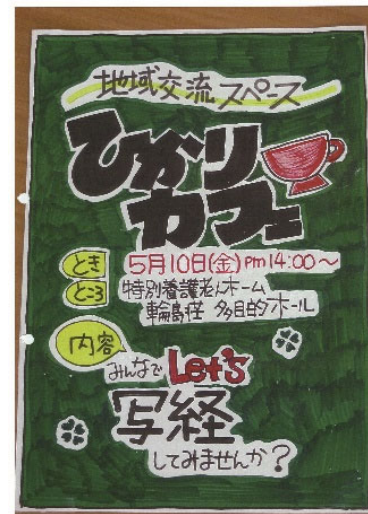 地域交流スペース
ひかり
カフェ
とき 5月10日(金) pm14:00～
ところ 特別養護老人ホーム
輪島荘 多目的ホール
内容
みんなで Let's
写経
してみませんか?